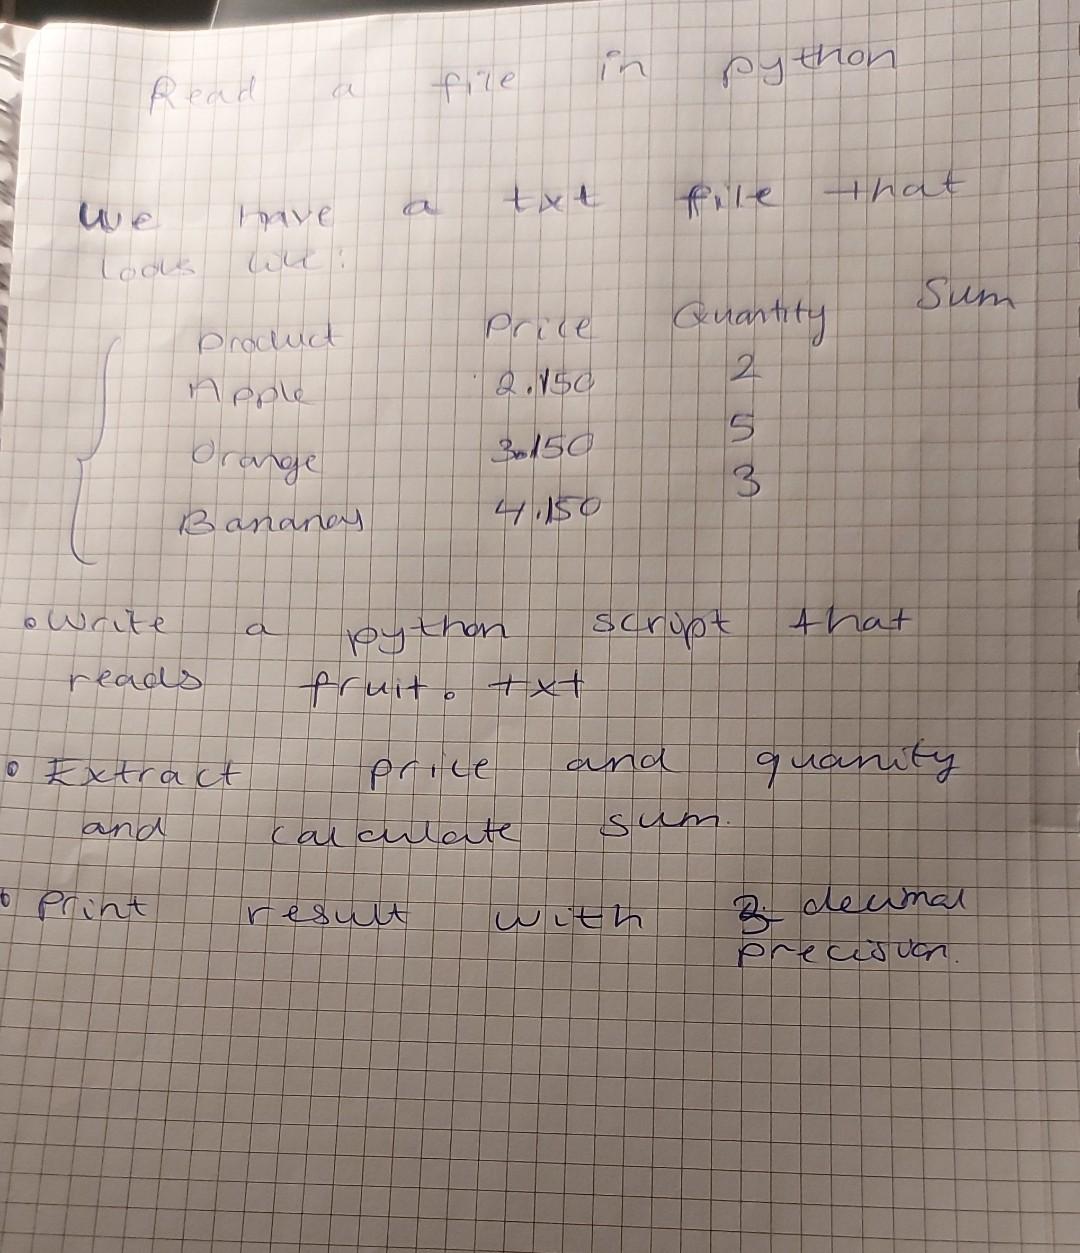 Read a file in python
We have a txt file that
looks like:
Product Price Quantity Sum
Apple 2.150 2
Orange 3.150 5
Bananas 4.150 3
• Write a python script that
reads fruit. txt
• Extract price and quanity
and calculate sum.
• Print result with 3 decimal
precision.